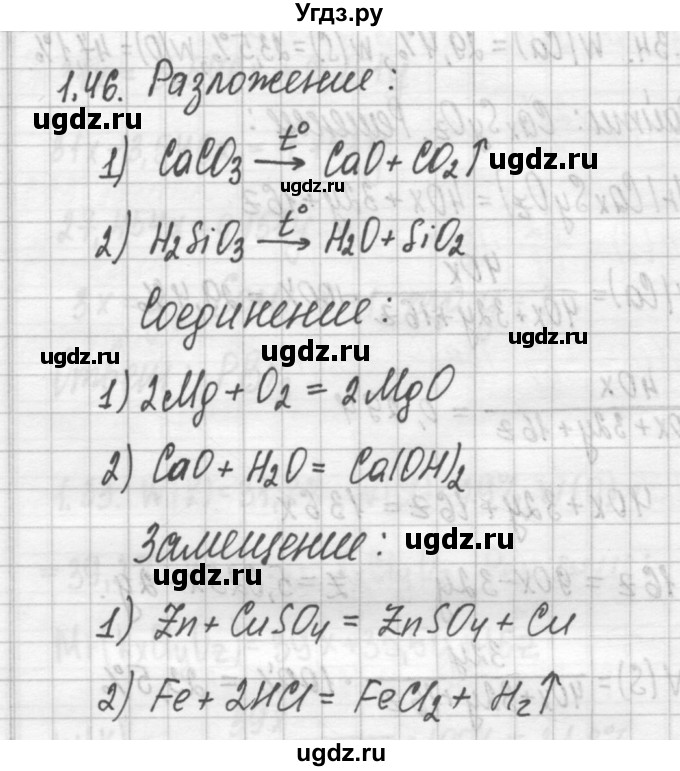 Угдз.ру
1.46. Разложение:
ugdz.ru
1) CaCO3 t° → CaO + CO2↑ ugdz.ru
ugdz.ru
2) H2SiO3 t° → H2O + SiO2
Соединение:
ugdz.ru
ugdz.ru ugdz.ru
1) 2Mg + O2 = 2MgO
2) CaO + H2O = Ca(OH)2
Замещение: ugdz.ru
ugdz.ru
1) Zn + CuSO4 = ZnSO4 + Cu
2) Fe + 2HCl = FeCl2 + H2↑
ugdz.ru